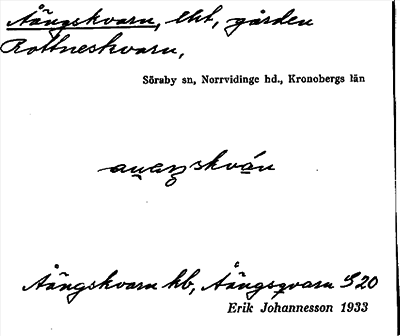 Åängskvarn, lht, gården
Rottneskvarn,
Söraby sn, Norrvidinge hd., Kronobergs län
Åängskvarn kb, Åängsqvarn S 20
Erik Johannesson 1933